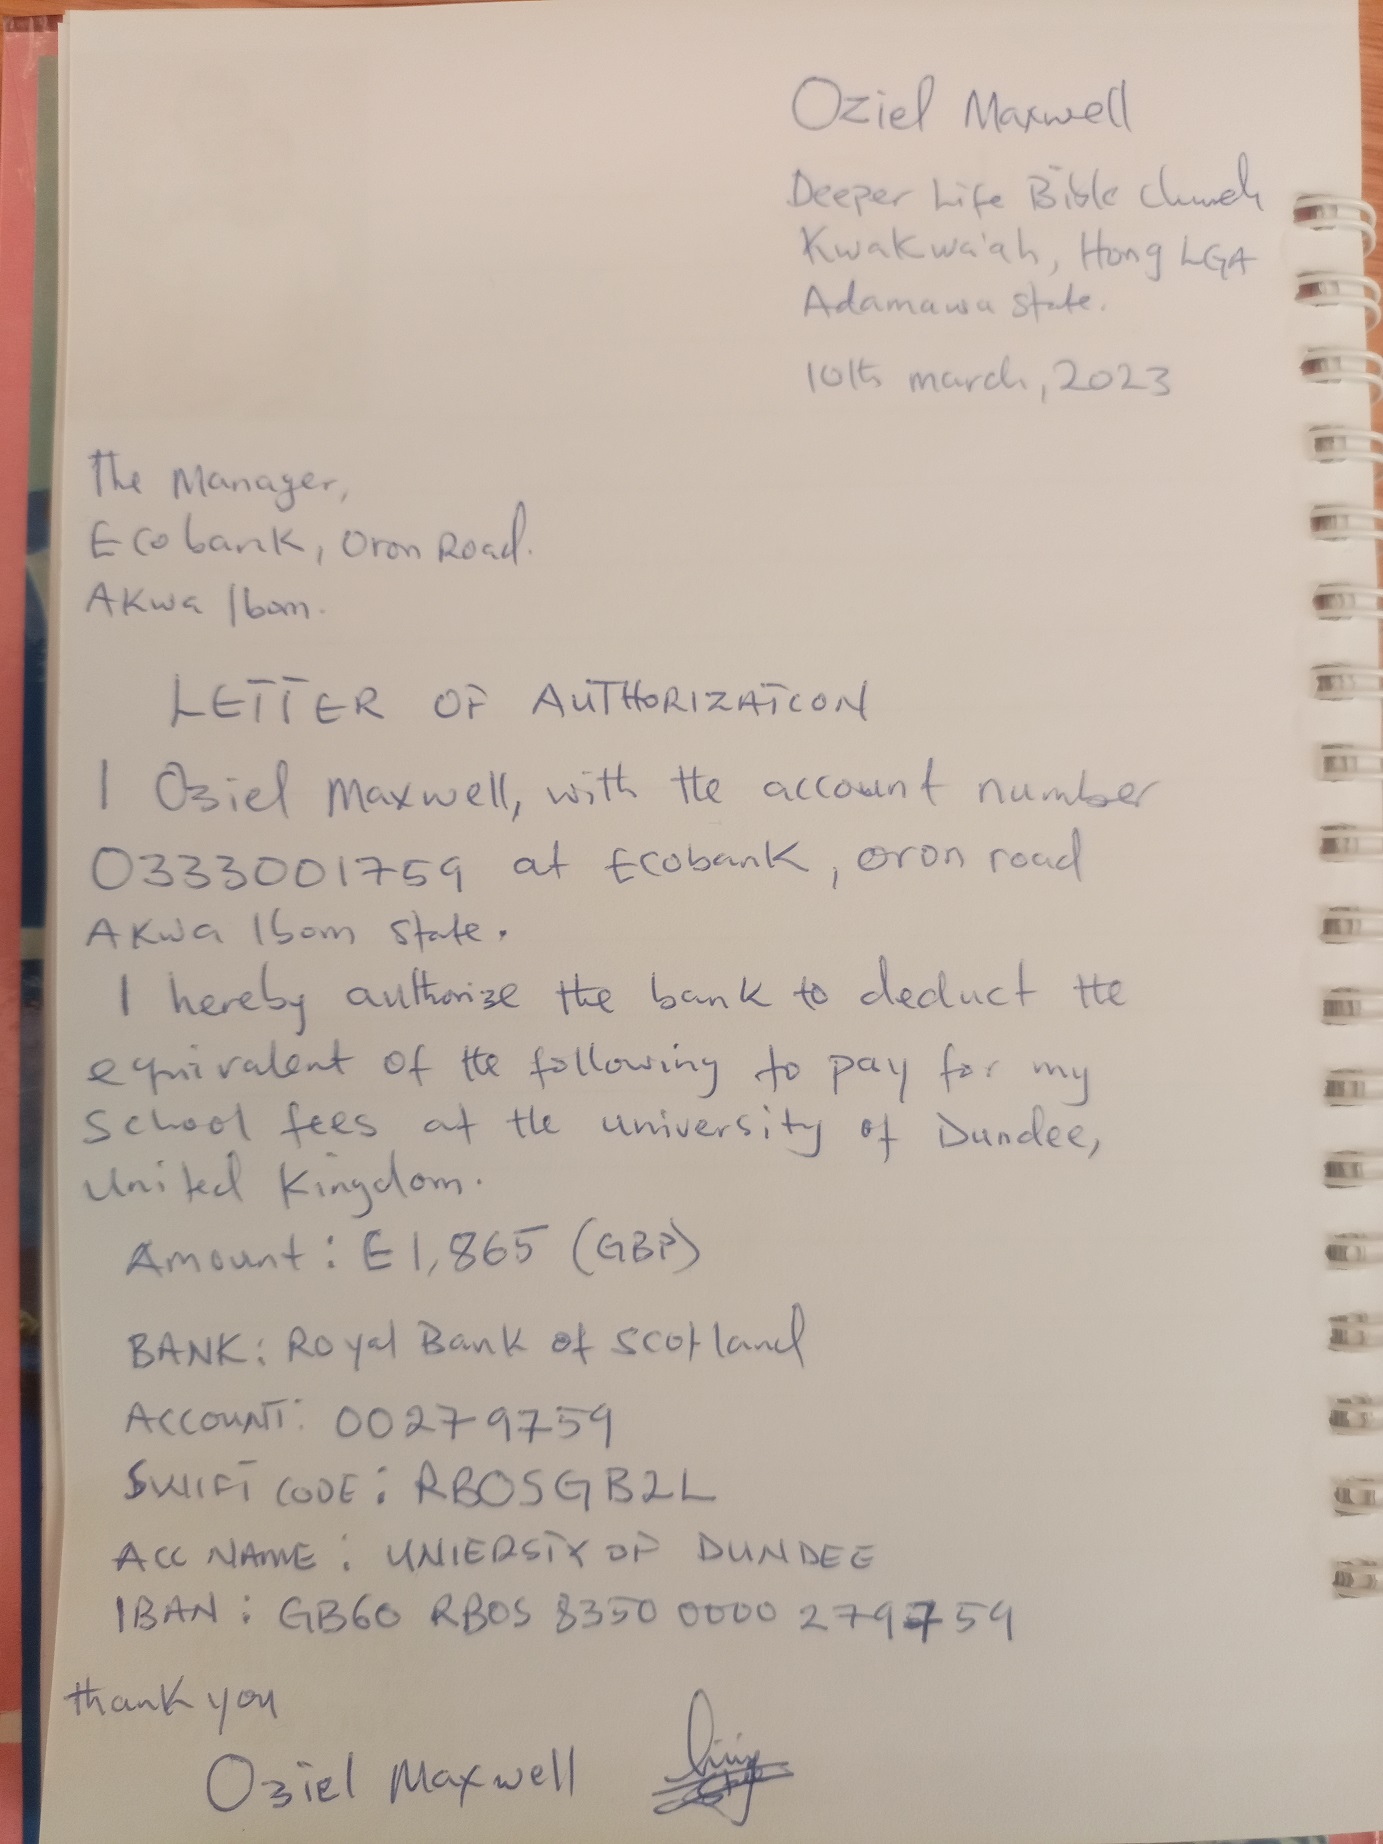 Oziel Maxwell
Deeper Life Bible Church
Kwakwa'ah, Hong LGA
Adamawa State.
10th march, 2023
The Manager,
Ecobank, Oron Road.
Akwa Ibom.
LETTER OF AUTHORIZATION
I Oziel Maxwell, with the account number
0333001759 at Ecobank, oron road
Akwa Ibom State.
I hereby authorize the bank to deduct the
equivalent of the following to pay for my
School fees at the university of Dundee,
United Kingdom.
Amount: £1,865 (GBP)
BANK: Royal Bank of Scotland
ACCOUNT: 00279759
SWIFT CODE: RBOSGB2L
ACC NAME: UNIERSITY OF DUNDEE
IBAN: GB60 RBOS 8350 0000 279759
thank you
Oziel Maxwell